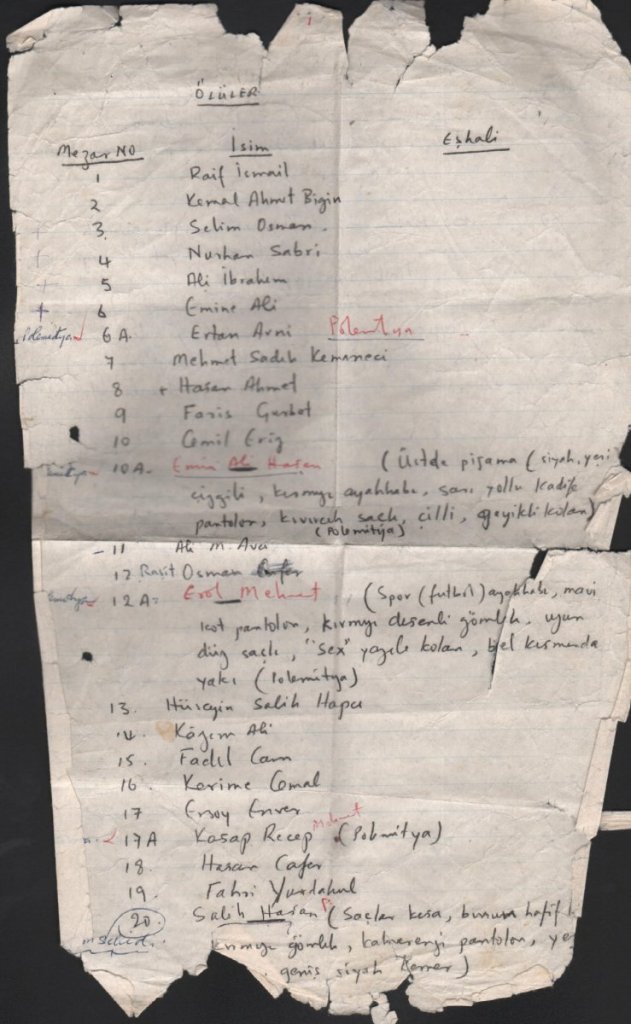 1
ÖLÜLER
Mezar NO İsim Eşhali
1 Raif İsmail
2 Kemal Ahmet Bigin
3. Selim Osman
4 Nurhan Sabri
5 Ali İbrahim
+ 6 Emine Ali
Polemitya 6 A. Ertan Avni Polemitya
7 Mehmet Sadık Kemaneci
8 + Hasan Ahmet
9 Faris
10 Cemil Eriş
10 A. Emin Ali Hasan (Üstde pijama (siyah, yeşi
çizgili, kırmızı ayakkabı, sarı yollu kadife
pantolon, kıvırcık saçlı, çilli, geyikli kolan)
(Polemitija)
- 11 Ali M. Avcı
12 Raşit Osman
12 A- Erol Mehmet (Spor (futbol) ayakkabı, mavi
kot pantolon, kırmızı desenli gömlek, uzun
düz saçlı, "Sex" yazılı kolan, bel kısmında
yakı (Polemitya)
13. Hüseyin Salih Hapcı
14. Kâzım Ali
15. Fadıl Cam
16. Kerime Cemal
17 Ersoy Enver
17 A Kasap Recep Mehmet (Polemitya)
18. Hasan Cafer
19. Fahri Yurdakul
20. Salih Hasan (Saçlar kısa, burnun hafif
? kırmızı gömlek, kahverengi pantolon, ye
geniş siyah Kemer)